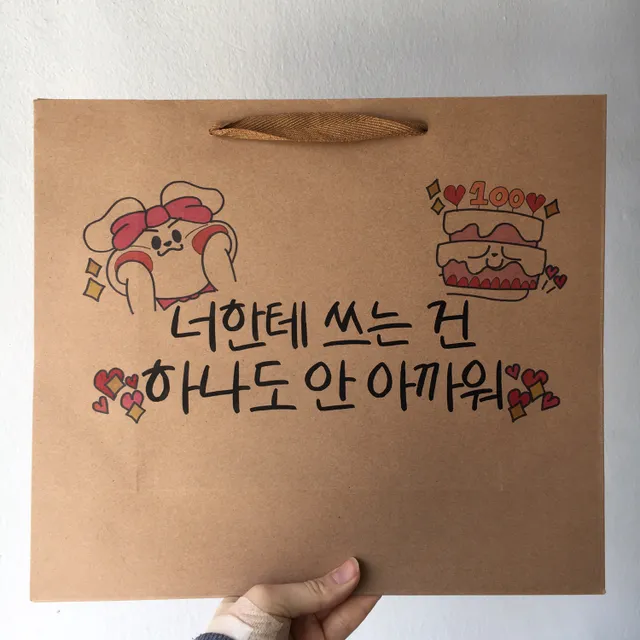 100
너한테 쓰는 건
하나도 안 아까워